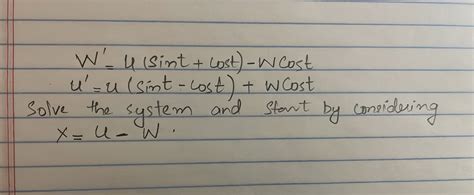 W' = u (sint + cost) - W Cost
u' = u (sint - cost) + W Cost
Solve the system and start by considering
x = u - W.